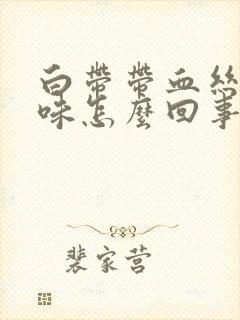 白帶帶血絲
味怎麼回事
裴家营